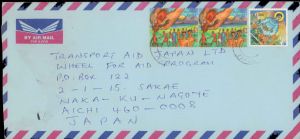 BY AIR MAIL
TRANSPORT AID JAPAN LTD
WHEEL FOR AID PROGRAM
P.O. BOX 122
2-1-15-SAKAE
NAKA-KU-NAGOYE
AICHI 460-0008
JAPAN